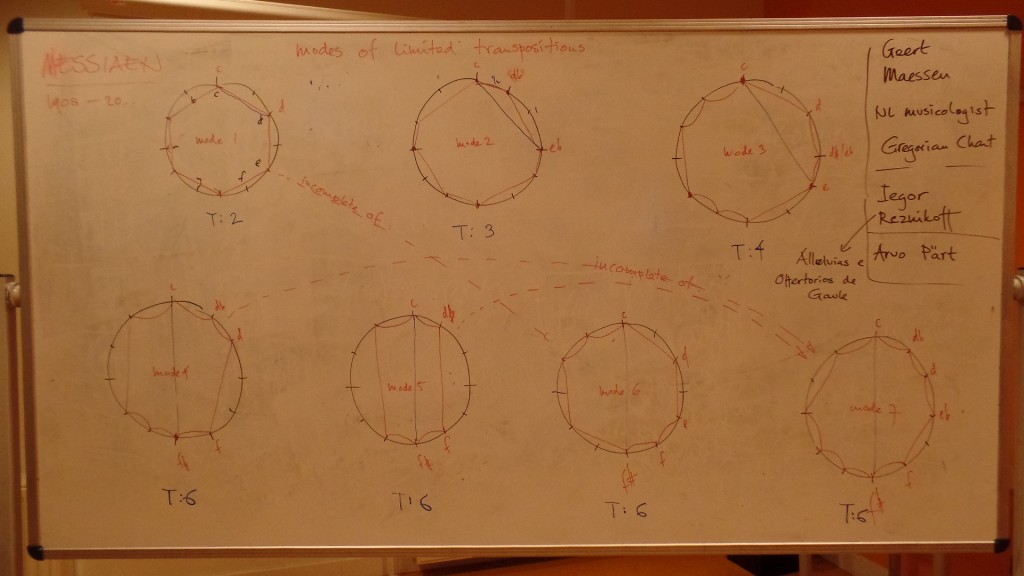 MESSIAEN
1908 - 20..
modes of limited transpositions
c
c
b
d
d
e
f
g
mode 1
T: 2
incomplete of
c
db
eb
mode 2
T: 3
c
d
db/eb
e
mode 3
T: 4
Geert
Maessen
NL musicologist
Gregorian Chant
Iegor
Reznikoff
Arvo Pärt
Alleluias e
Offertorios de
Gaule
incomplete of
c
db
d
mode 4
f
f#
T: 6
c
db
mode 5
f
f#
T: 6
c
d
mode 6
e
f
f#
T: 6
c
db
d
eb
mode 7
f
f#
T: 6